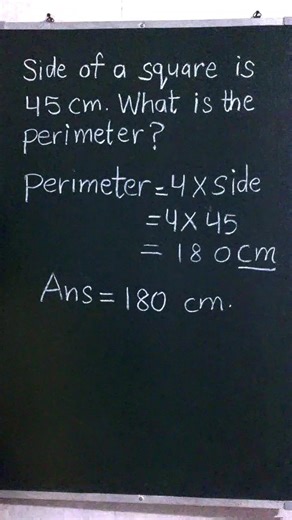 Side of a square is
45 cm. What is the
perimeter?
Perimeter = 4 × Side
= 4 × 45
= 180 cm
Ans = 180 cm.